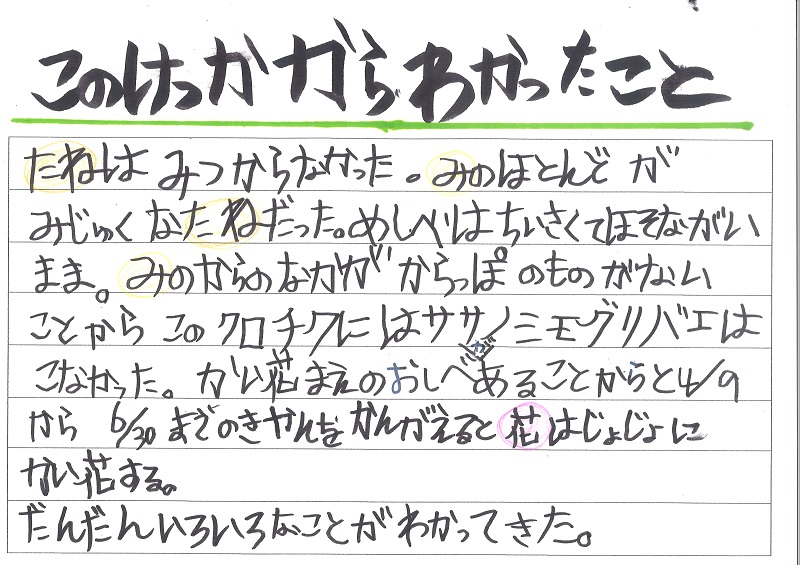 このけっかからわかったこと
たねは みつからなかった。みのほとんど が
みじゅくなたねだった。めしべはちいさくてほそながい
まま。みのからのなかが からっぽ のものがない
ことから このクロチクにはササノミモグリバエは
こなかった。かい花まえのおしべがあることからと4/9
から 6/30までのきかんをかんがえると花はじょじょに
かい花する。
だんだんいろいろなことがわかってきた。